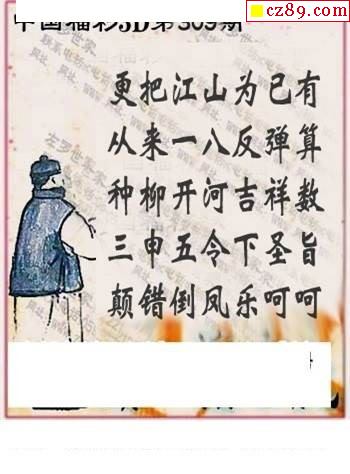 cz89.com
中国福彩3D第309期
更把江山为已有
从来一八反弹算
种柳开河吉祥数
三申五令下圣旨
颠错倒凤乐呵呵